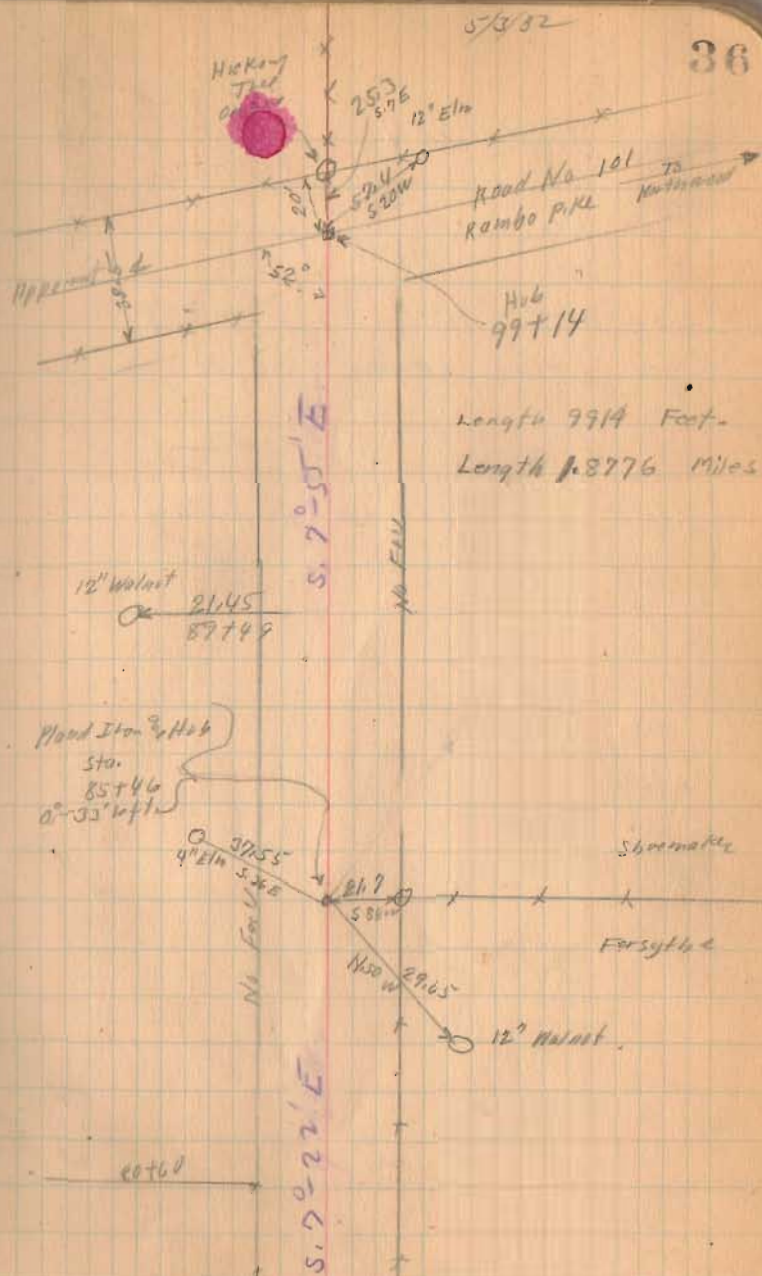 5/3/32
36
Hickory
Tree
25.3
S.7E
12" Elm
57.4
S20W
20'
Road No 101
Rambo Pike
To
Apparent
38.5
52°
Hub
99+14
Length 9914 Feet.
Length 1.8776 Miles
S. 7°-55' E
12" Walnut
21.45
89+49
Placed Iron & Hub
Sta.
85+46
0°-33' left
4" Elm
37.55
S.36E
21.7
Shoemaker
Forsythe
N.50
W
29.65
12" Walnut
S. 7°-22' E